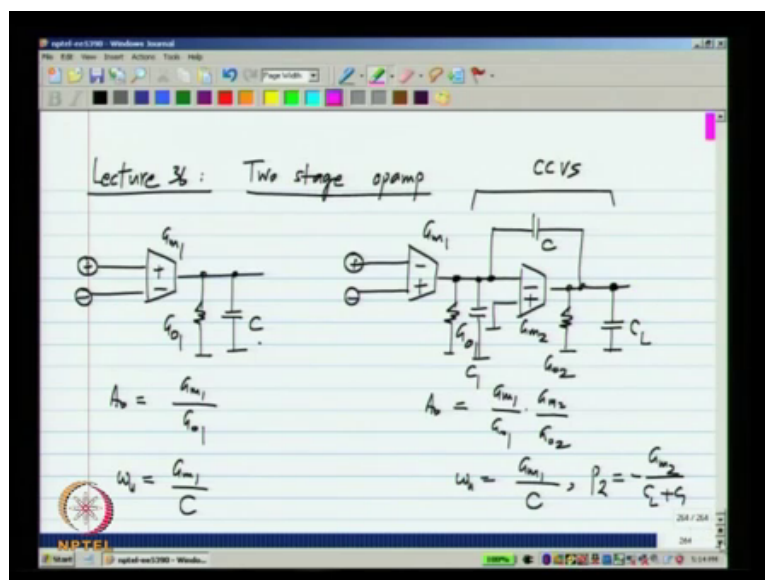 nptel-ee5390 - Windows Journal
File Edit View Insert Actions Tools Help
Page Width
B I
Lecture 36 : Two stage opamp
CCVS
Gm1
+
-
+
-
Go1
C
Gm1
+
-
-
+
Go1
C1
C
-
+
Gm2
Go2
CL
A0 = Gm1 / Go1
A0 = Gm1 / Go1 · Gm2 / Go2
ωu = Gm1 / C
ωu = Gm1 / C , P2 = - Gm2 / CL + C1
264 / 264
264
NPTEL
Start
nptel-ee5390 - Windo...
100%
5:14 PM